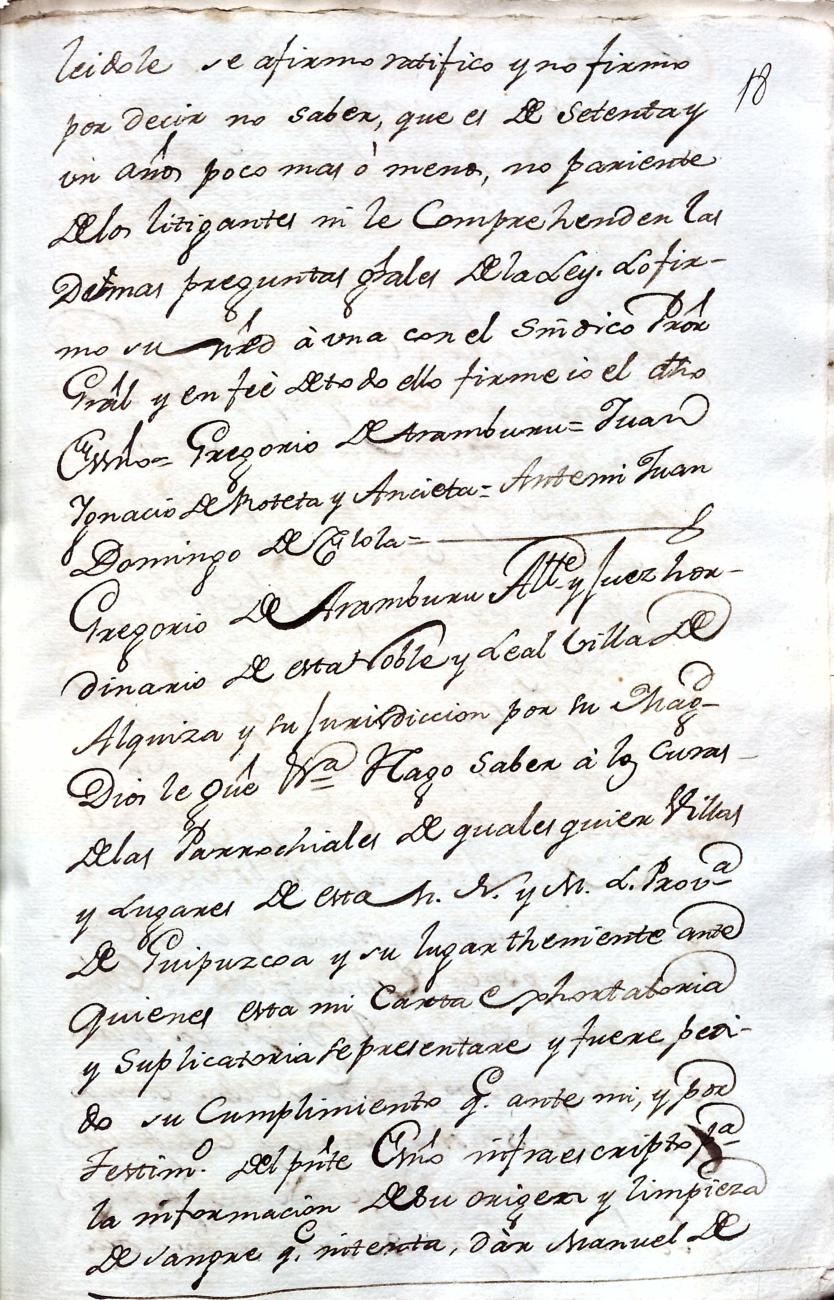 leidole se afirmo ratifico y no firmo
18
por decir no saber, que es de setenta y
un años poco mas ò menos, no pariente
delos litigantes ni le Comprehenden las
Demas preguntas grales dela Ley. Lo fir-
mo su mrd à una con el Sindico Pror
Gral y en feè detodo ello firme io el dho
Essno= Gregorio de Aramburu= Juan
Ygnacio de Moteta y Ancieta= Ante mi Juan
Domingo de Elola=
Gregorio de Aramburu Alltte y Juez hor-
dinario de esta Noble y Leal Villa de
Alquiza y su Jurisdiccion por su Magd
Dios le gue Va Hago saber à los Curas
delas Parrochiales de qualesquier Villas
y Lugares de esta M. N. y M. L. Prova
de Guipuzcoa y su lugar theniente ante
quienes esta mi Carta Exhortatoria
y Suplicatoria se presentare y fuere pedi-
do su Cumplimiento q. ante mi, y por
Testimo. del pnte Essno infraescripto pa
la informacion de su origen y limpieza
de sangre q. intenta, dàr Manuel de